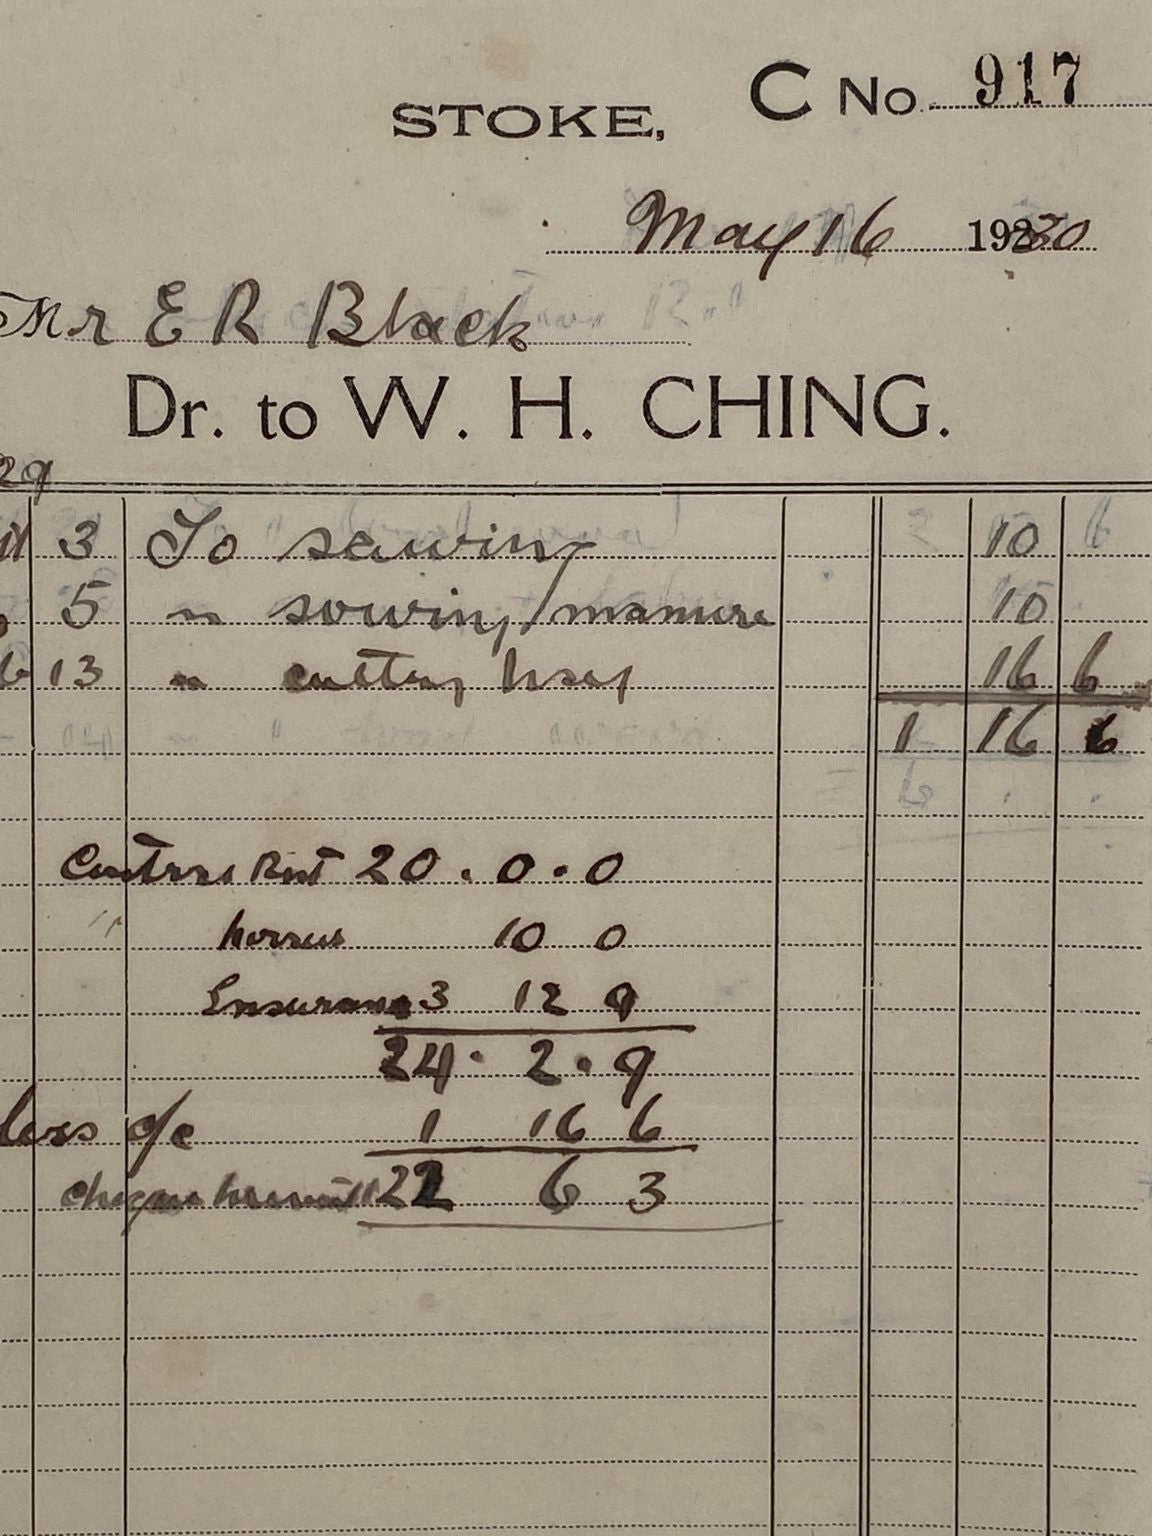 C No. 917
STOKE,
May 16 1930
Mr E R Black
Dr. to W. H. CHING.
29
3 To sawing 10
5 " sowing manure 10
13 " cutting hay 16 6
1 16 6
Rent 20 . 0 . 0
" horses 10 0
Insurance 3 12 9
24 . 2 . 9
less a/c 1 16 6
cheque herewith 22 6 3